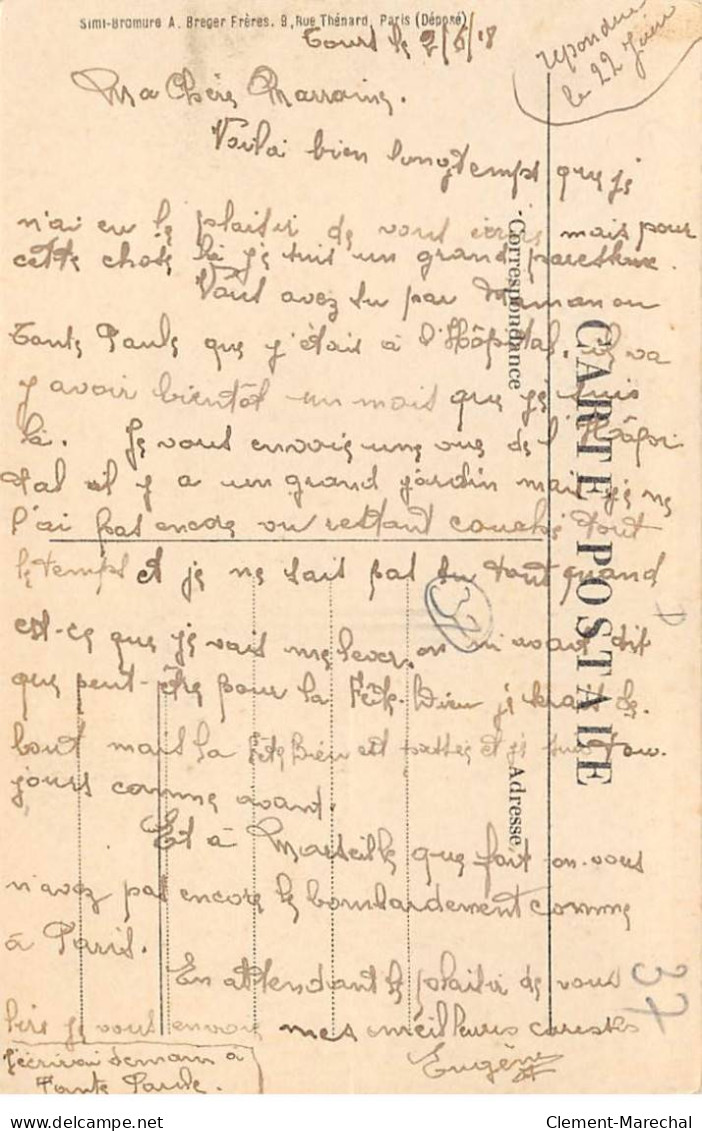 Simi-Bromure A. Breger Frères. 9, Rue Thénard, Paris (Déposé)
Tours le 2/6/18
repondue
le 22 Juin
Ma Chère Marraine.
Voilai bien longtempt que je
n'ai eu le plaisir de vous écrire mais pour
cette chose là je suis un grand
Vous avez su par Maman ou
Tante Paule que j'étais à l'Hôpital. Il va
y avoir bientôt un mois que je suis
là. Je vous envoie une vue de l'Hôpi
tal il y a un grand jardin mais je ne
l'ai pas encore vu restant couché tout
le temps et je ne sait pas du tout quand
est-ce que je vais me lever. on m'avait dit
que peut-être pour la Fête-Dieu je serais de-
bout mais la Fête Dieu est passée et je suis tou-
jours comme avant.
Et à Marseille que fait-on. vous
n'avez pas encore le bombardement comme
à Paris.
En attendant le plaisir de vous
lire je vous envoie mes meilleures caresses
Eugène
J'écrirai demain à
Tante Paule.
CARTE POSTALE
Correspondance
Adresse
37
37
Clement-Marechal